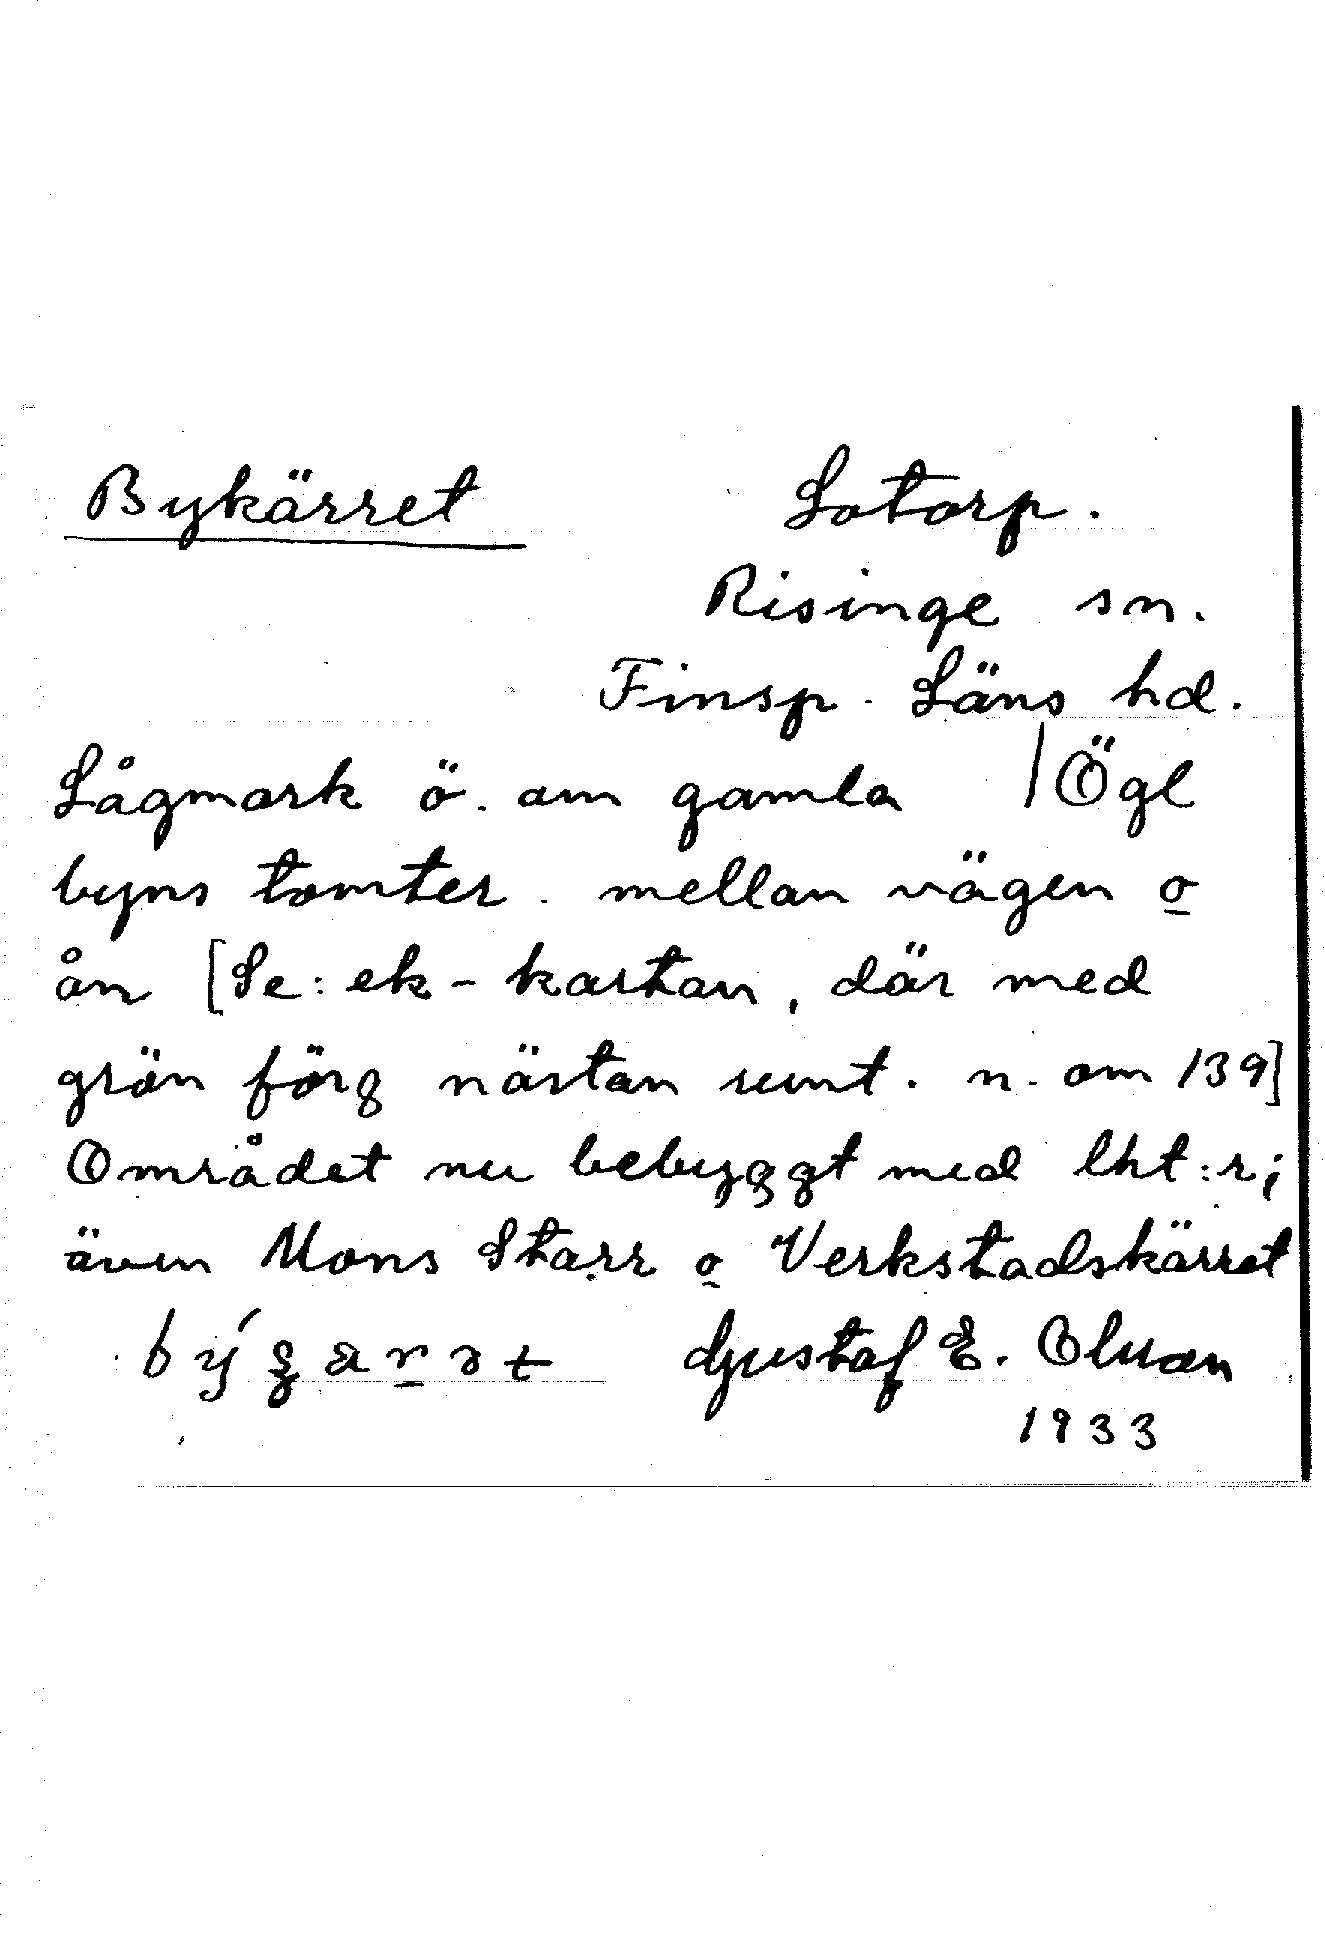 Bykärret
Lotorp.
Risinge sn.
Finsp. Läns hd.
Lågmark ö. om gamla | Ögl
byns tomter. mellan vägen o
ån [Se: ek-kartan, där med
grön färg nästan runt. n. om 139]
Området nu bebyggt med lht:r;
även Mons Starr o Verkstadskärret
Gustaf E. Olsson
1933